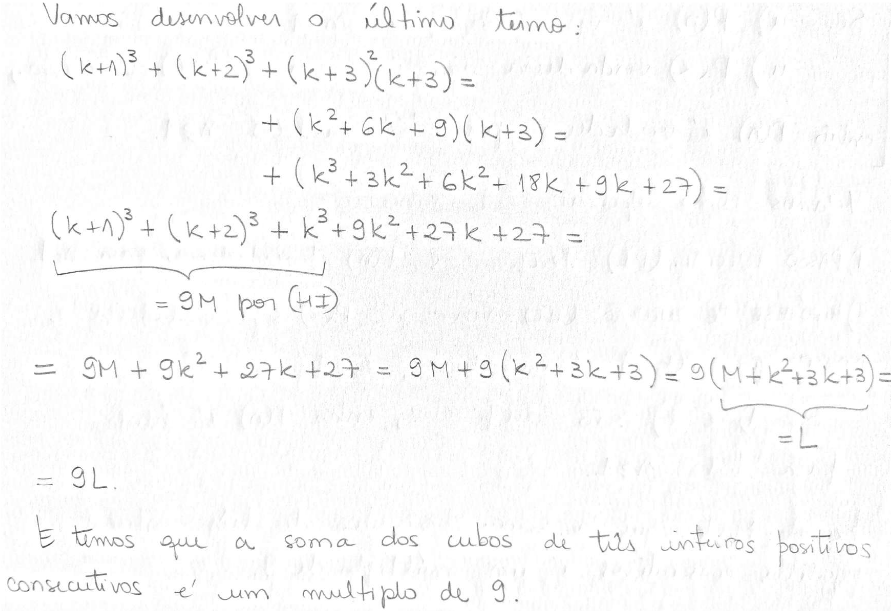 Vamos desenvolver o último termo:
(k+1)³ + (k+2)³ + (k+3)²(k+3) =
+ (k² + 6k + 9)(k+3) =
+ (k³ + 3k² + 6k² + 18k + 9k + 27) =
(k+1)³ + (k+2)³ + k³ + 9k² + 27k + 27 =
= 9M por (HI)
= 9M + 9k² + 27k + 27 = 9M + 9(k² + 3k + 3) = 9(M + k² + 3k + 3) =
= L
= 9L.
E temos que a soma dos cubos de três inteiros positivos
consecutivos é um multiplo de 9.